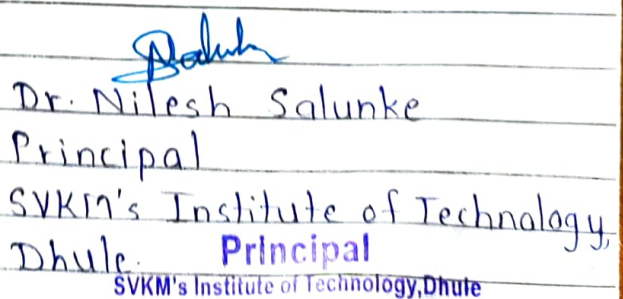 Dr. Nilesh Salunke
Principal
SVKM's Institute of Technology,
Dhule.
Principal
SVKM's Institute of Technology,Dhule